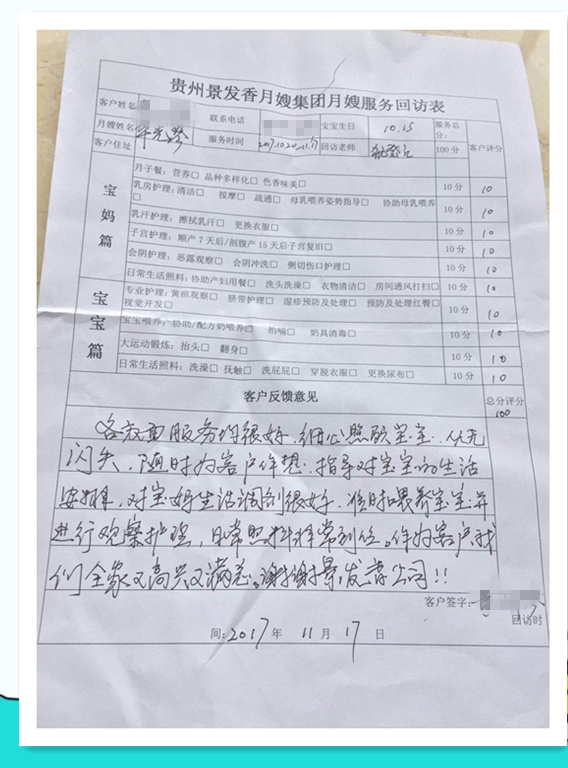 贵州景发香月嫂集团月嫂服务回访表
客户姓名 联系电话 宝宝生日 10.15 服务总分: 客户评分
月嫂姓名 服务时间 2017.10.20-11.17 回访老师 100分
客户住址
宝妈篇
月子餐:营养□ 品种多样化□ 色香味美□ 10分 10
乳房护理:清洁□ 按摩□ 疏通□ 母乳喂养姿势指导□ 协助母乳喂养□ 10分 10
乳汗护理:擦拭乳汗□ 更换衣服□ 10分 10
子宫护理:顺产7天后/剖腹产15天后子宫复旧□ 10分 10
会阴护理:恶露观察□ 会阴冲洗□ 侧切伤口护理□ 10分 10
日常生活照料:协助产妇用餐□ 洗头洗澡□ 衣物清洁□ 房间通风打扫□ 10分 10
宝宝篇
专业护理:黄疸观察□ 脐带护理□ 湿疹预防及处理□ 预防及处理红臀□
视觉开发□ 10分 10
宝宝喂养:协助/配方奶喂养□ 拍嗝□ 奶具消毒□ 10分 10
大运动锻炼:抬头□ 翻身□ 10分 10
日常生活照料:洗澡□ 抚触□ 洗屁屁□ 穿脱衣服□ 更换尿布□ 10分 10
客户反馈意见 总分评分
100
各放面服务均很好,细心照顾宝宝,从无
闪失,随时为客户作想,指导对宝宝的生活
安排,对宝妈生活调剂很好,准时喂养宝宝并
进行观察护理,日常照料非常到位。作为客户,我
们全家又高兴又满意。谢谢景发香公司!!
客户签字:
回访时
间:2017年 11月 17日